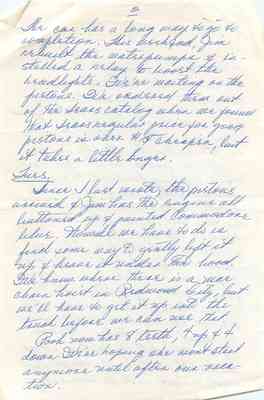 2
The car has a long way to go to
completion. Her husband, Jim
rebuilt the waterpumps & in-
stalled a relay to boost the
headlights. I'm waiting on the
pistons. We ordered them out
of the Sears catalog when we found
that Sears regular price for good
pistons is over cheaper, but
it takes a little longer.
Tues.
Since I last wrote, the pistons
arrived & Jim has the engine all
buttoned up & painted Commodore
blue. Now all we have to do is
find some way to gently lift it
up & heave it under the hood.
We know where there is a
chain hoist in Redwood City, but
we'll have to get it up into the
truck before we can use that.
now has 8 teeth, 4 up & 4
down. We're hoping she won't start
anymore until after our vaca-
tion.